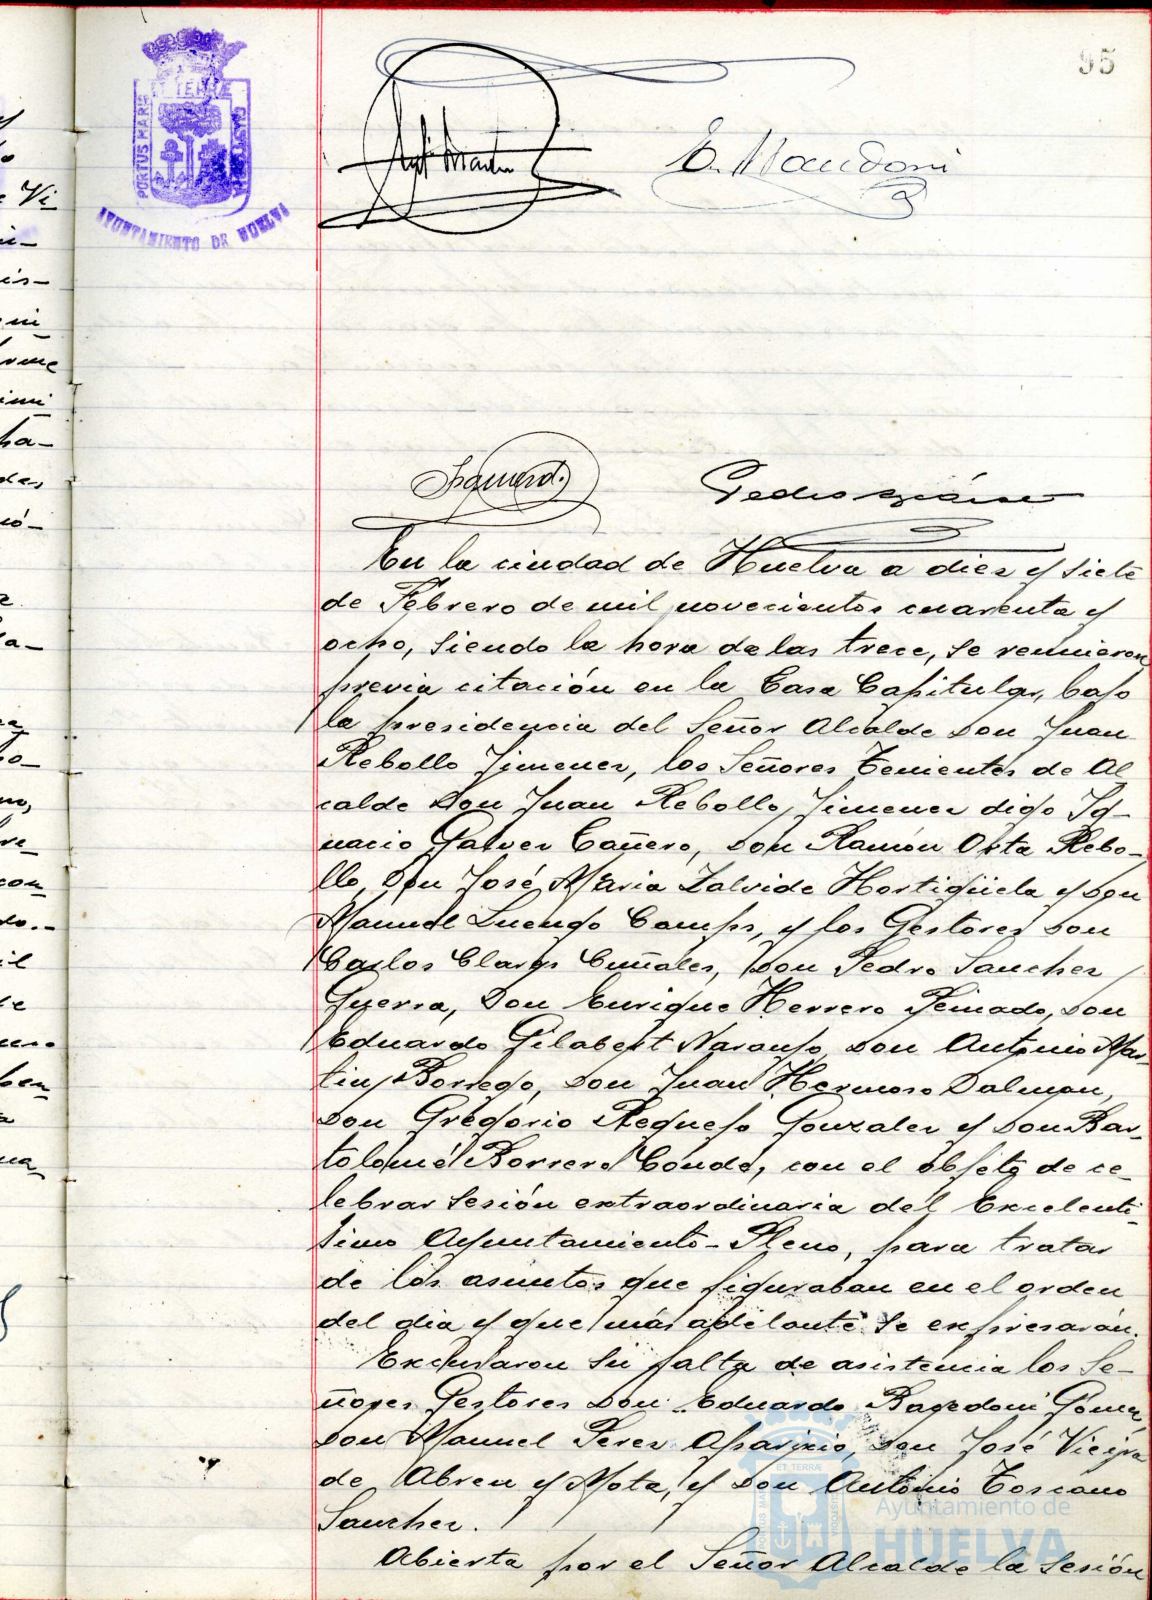 95
PORTUS MARIS
ET TERRÆ
AYUNTAMIENTO DE HUELVA
En la ciudad de Huelva a diez y siete
de Febrero de mil novecientos cuarenta y
ocho, siendo la hora de las trece, se reunieron
previa citación en la Casa Capitular, bajo
la presidencia del Señor Alcalde Don Juan
Rebollo Jimenez, los Señores Tenientes de Al
calde Don Juan Rebollo Jimenez digo Ig-
nacio Galvez Cañero, Don Ramón Orta Rebo-
llo, Don José Maria Zalvide Hortigüela y Don
Manuel Luengo Camps, y los Gestores Don
Carlos Claros Cuñales, Don Pedro Sanchez
Guerra, Don Enrique Herrero Peinado, Don
Eduardo Gilabert Naranjo, Don Antonio Mar-
tin Borrego, Don Juan Hermoso Dalmon,
Don Gregorio Requejo Gonzalez y Don Bar-
tolomé Borrero Conde, con el objeto de ce-
lebrar sesión extraordinaria del Excelentí-
simo Ayuntamiento-Pleno, para tratar
de los asuntos que figuraban en el orden
del dia y que más adelante se expresarán.
Excusaron su falta de asistencia los Se-
ñores Gestores Don Eduardo Gomez
Don Manuel Perez Aparicio, Don José Vieira
de Abreu y Mota, y Don Antonio Toscano
Sanchez.
Abierta por el Señor Alcalde la Sesión
Ayuntamiento de
HUELVA